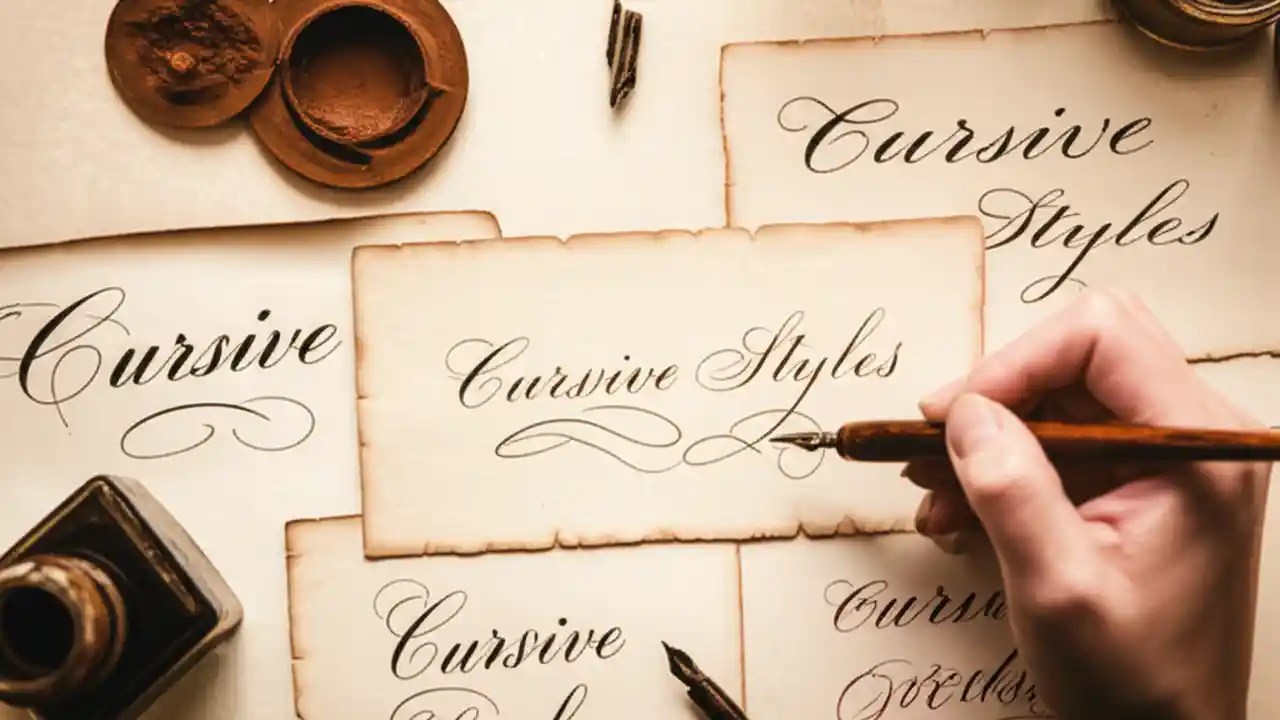 Cursive
Styles
Cursive
Cursive Styles
Cursive